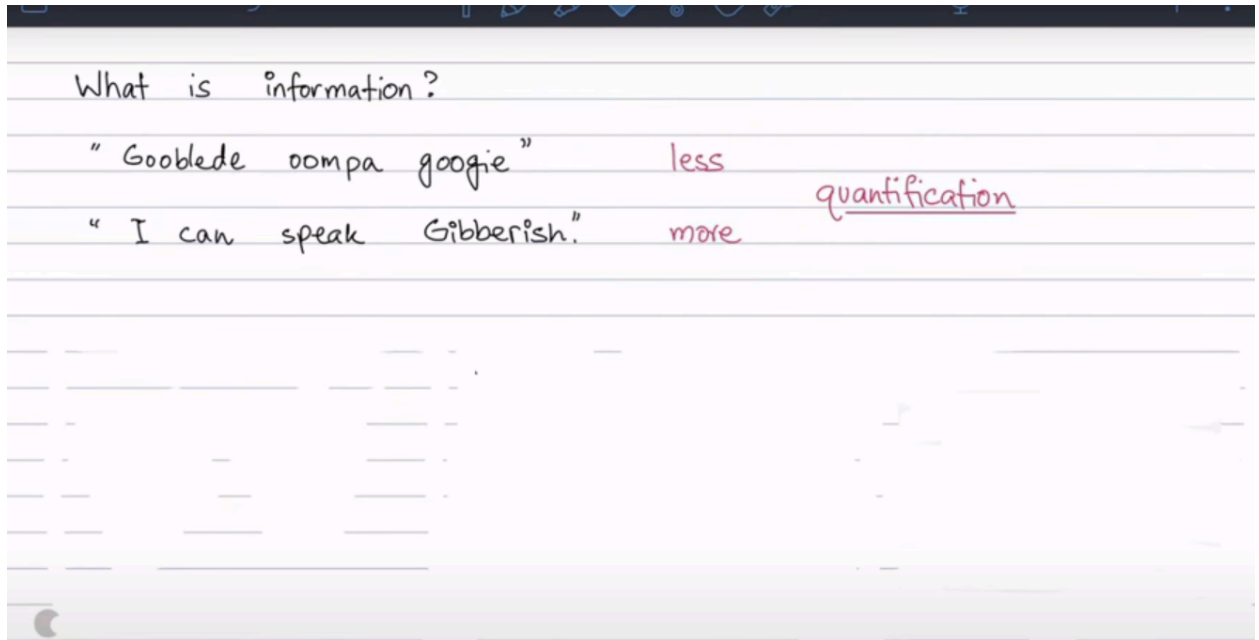 What is information?
“Gooblede oompa googie” less
quantification
“I can speak Gibberish.” more